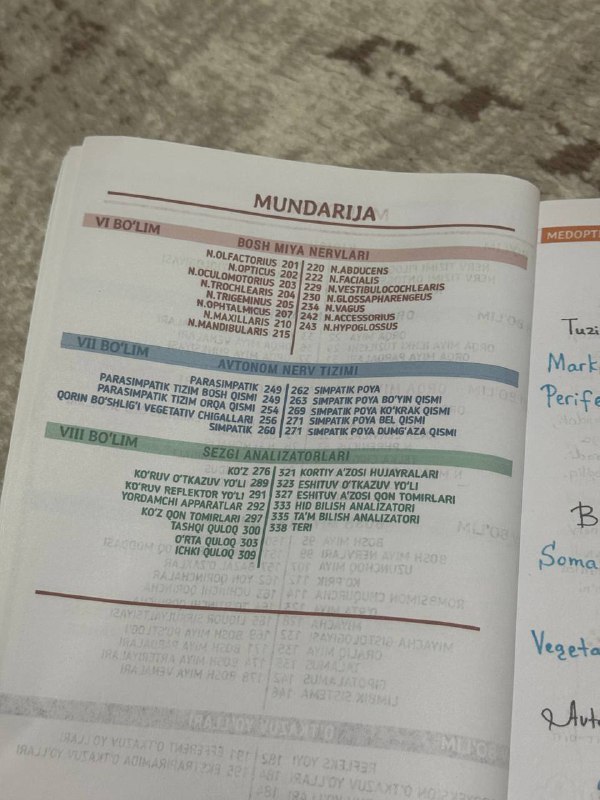 MUNDARIJA
VI BO'LIM
BOSH MIYA NERVLARI
N.OLFACTORIUS 201
N.OPTICUS 202
N.OCULOMOTORIUS 203
N.TROCHLEARIS 204
N.TRIGEMINUS 205
N.OPHTALMICUS 207
N.MAXILLARIS 210
N.MANDIBULARIS 215
220 N.ABDUCENS
222 N.FACIALIS
229 N.VESTIBULOCOCHLEARIS
230 N.GLOSSAPHARENGEUS
234 N.VAGUS
242 N.ACCESSORIUS
243 N.HYPOGLOSSUS
VII BO'LIM
AVTONOM NERV TIZIMI
PARASIMPATIK 249
PARASIMPATIK TIZIM BOSH QISMI 249
PARASIMPATIK TIZIM ORQA QISMI 254
QORIN BO'SHLIG'I VEGETATIV CHIGALLARI 256
SIMPATIK 260
262 SIMPATIK POYA
263 SIMPATIK POYA BO'YIN QISMI
269 SIMPATIK POYA KO'KRAK QISMI
271 SIMPATIK POYA BEL QISMI
271 SIMPATIK POYA DUMG'AZA QISMI
VIII BO'LIM
SEZGI ANALIZATORLARI
KO'Z 276
KO'RUV O'TKAZUV YO'LI 289
KO'RUV REFLEKTOR YO'LI 291
YORDAMCHI APPARATLAR 292
KO'Z QON TOMIRLARI 297
TASHQI QULOQ 300
O'RTA QULOQ 303
ICHKI QULOQ 309
321 KORTIY A'ZOSI HUJAYRALARI
323 ESHITUV O'TKAZUV YO'LI
327 ESHITUV A'ZOSI QON TOMIRLARI
333 HID BILISH ANALIZATORI
335 TA'M BILISH ANALIZATORI
338 TERI
MEDOPT
Tuzi
Mark
Perife
B
Soma
Vegeta
Avto